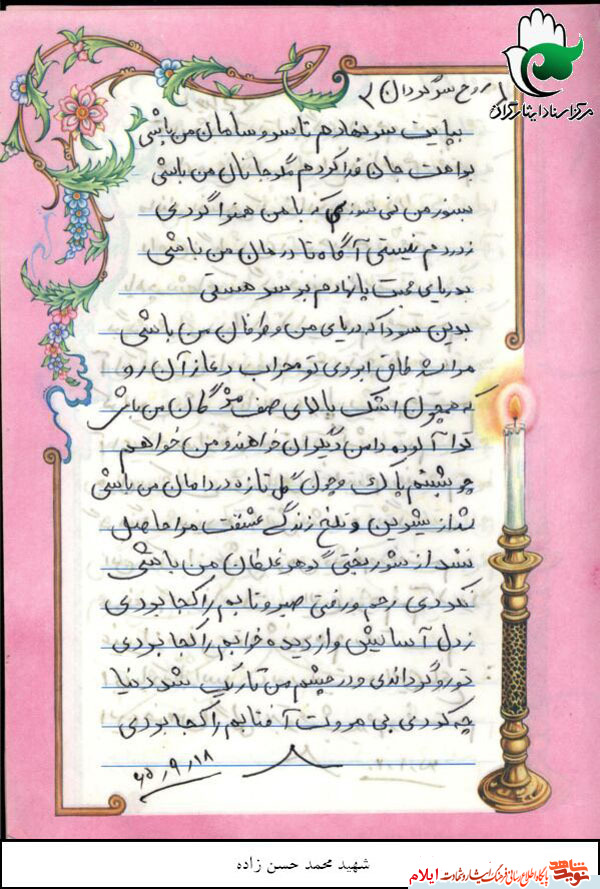 مرکز اسناد ایثارگران
(روح سرگردان)
بپایت سر نهادم تا سر و سامان من باشی
براهت جان فدا کردم مگر جانان من باشی
بسوز من نمی سوزی که با من همنوا گردی
ز دردم نیستی آگاه تا درمان من باشی
بدریای محبت پا نهادم بر سر هستی
بدین سودا که دریای من و طوفان من باشی
مرا شد طاق ابروی تو محراب دعا زآن رو
که همچون اشک بالای صف مژگان من باشی
ترا آلوده دامن دیگران خواهند و من خواهم
چو شبنم پاک و چون گل تازه در دامان من باشی
نشد از شیرین و تلخ زندگی عشقت مرا حاصل
نشد از شوربختی گوهر غلطان من باشی
نکردی رحم و رفتی صبر و تابم را کجا بردی
ز دل آسایش و از دیده خوابم را کجا بردی
تو رو گرداندی و در چشم من تاریک شد دنیا
چه کردی بی مروت آفتابم را کجا بردی
۶۵٫۹٫۱۸
شهید محمد حسن زاده
نوید شاهد
پایگاه اطلاع رسانی فرهنگ ایثار و شهادت ایلام